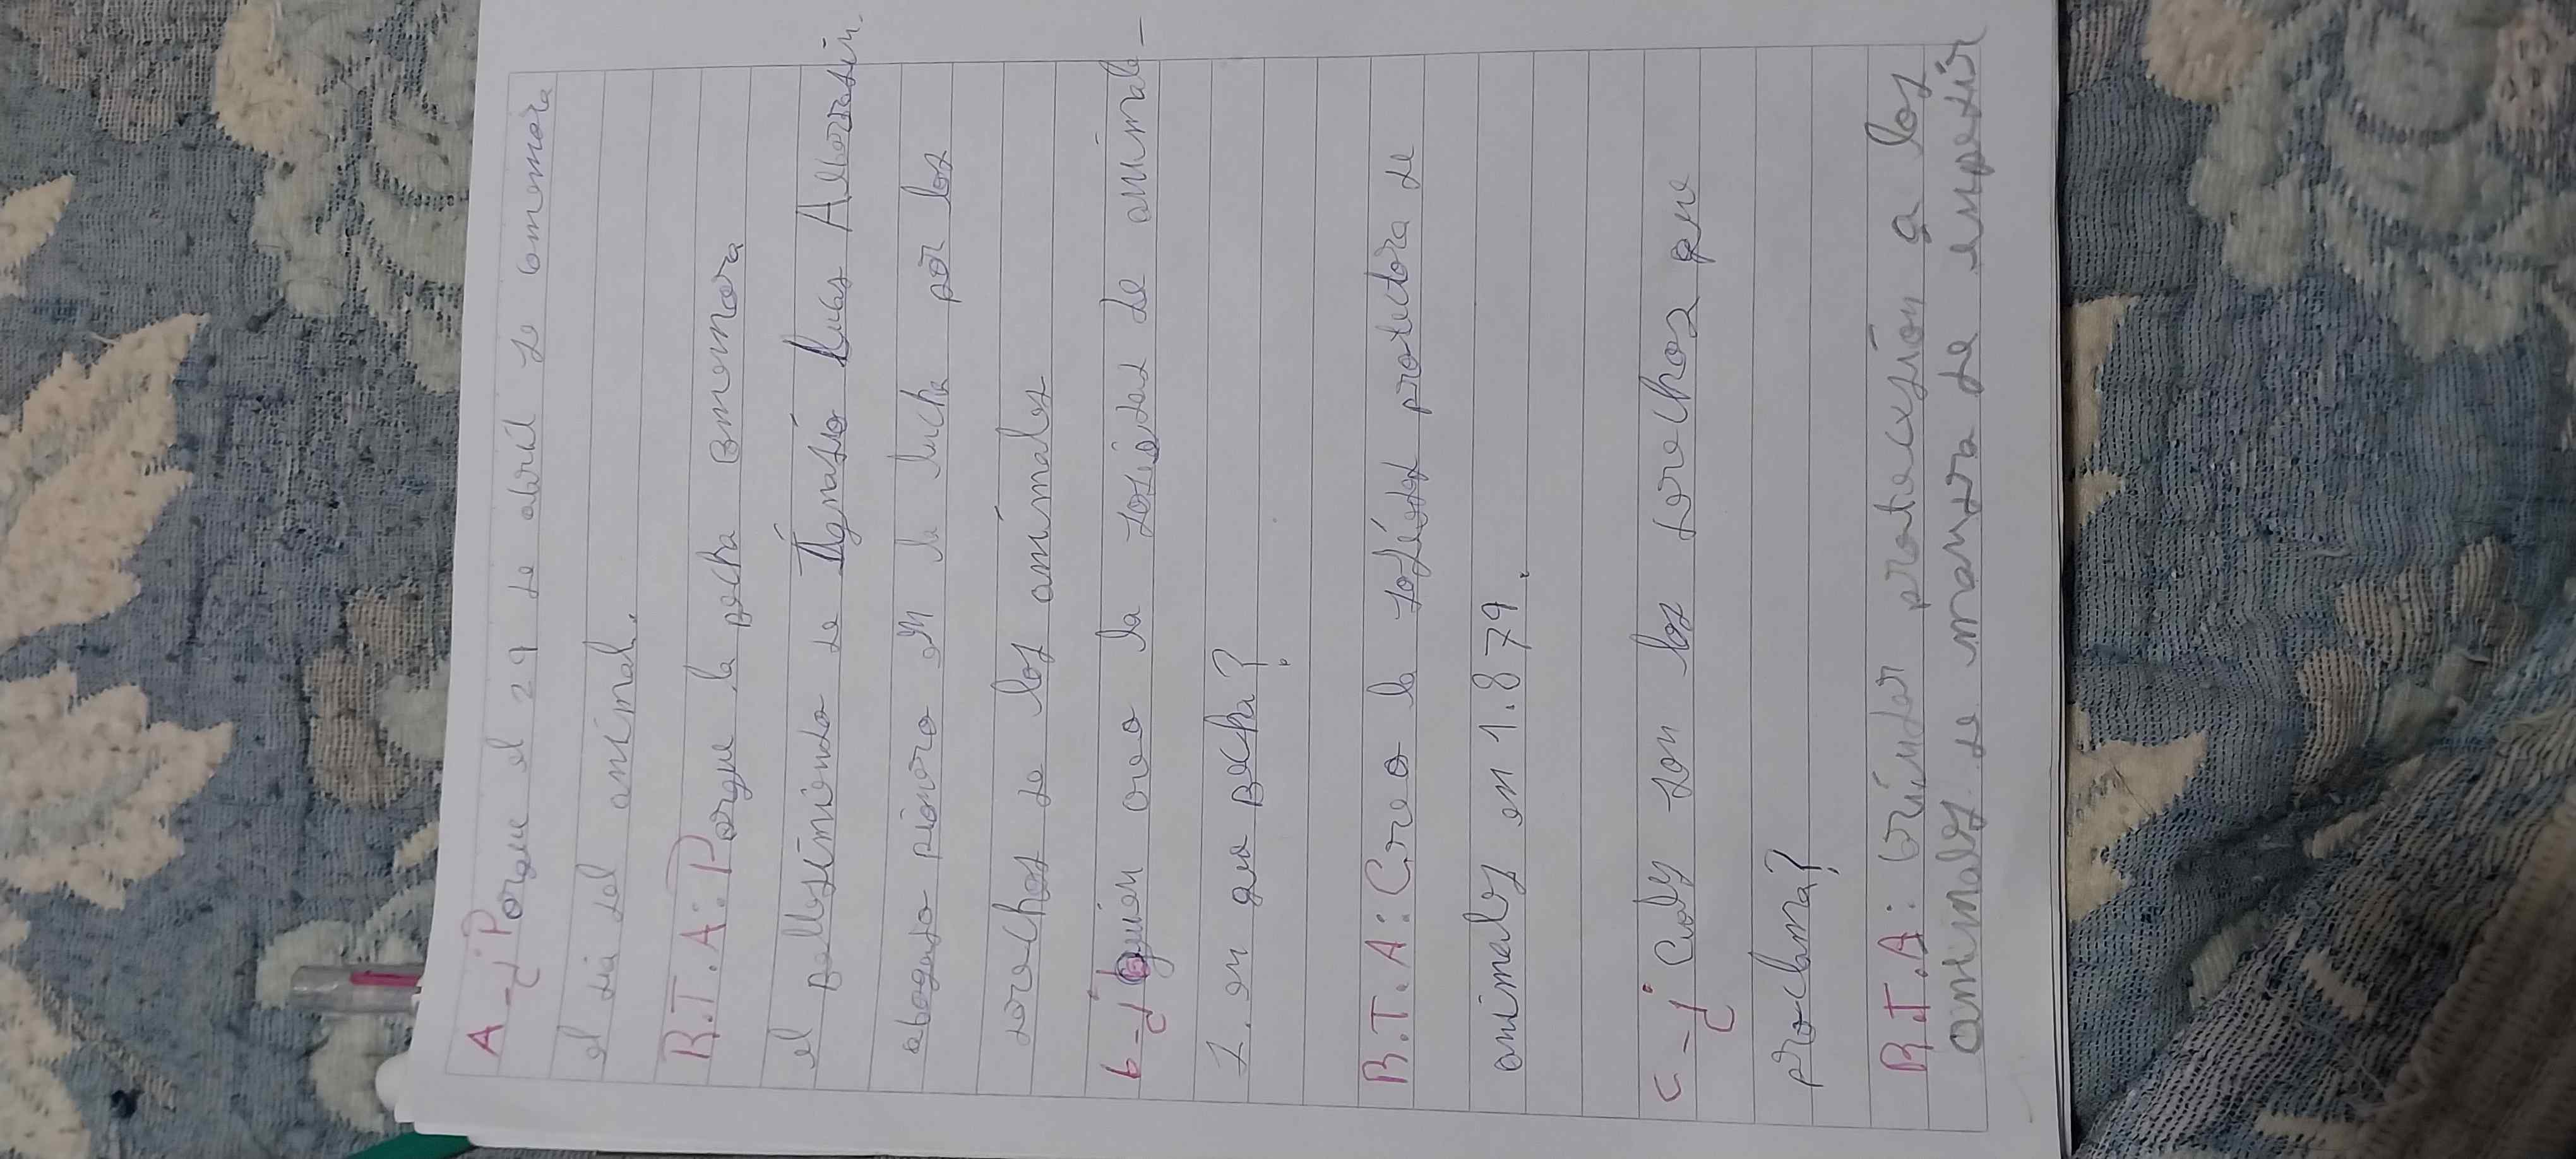 A-¿Porque el 29 de abril se comemora
el día del animal.
R.T.A: Porque la fecha conmemora
el fallesimiendo de Ígnasío Lucas Alborrasín
abogado pionero en la lucha por los
derechos de los anímales
b-¿quien creo la sosiedad de animale-
s. en que fecha?
R.T.A: Creo la sosiédad protectora de
animales en 1.879.
c-¿Cuales son los derechos que
proclama?
R.T.A: bríndar protecsión a los
animales de manera de impedir